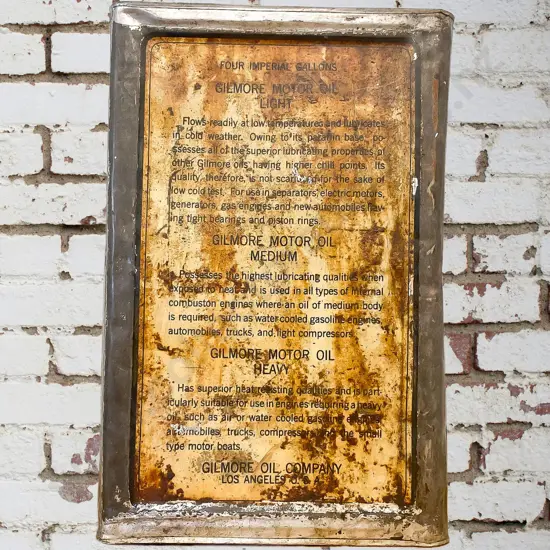 FOUR IMPERIAL GALLONS
GILMORE MOTOR OIL
LIGHT
Flows readily at low temperatures and lubricates
in cold weather. Owing to its paraffin base, po-
ssesses all of the superior lubricating properties of
other Gilmore oils having higher chill points. Its
quality, therefore, is not scarified for the sake of
low cold test. For use in separators, electric motors,
generators, gas engines and new automobiles hav-
ing tight bearings and piston rings.
GILMORE MOTOR OIL
MEDIUM
Possesses the highest lubricating qualities when
exposed to heat and is used in all types of internal
combustion engines where an oil of medium body
is required, such as water cooled gasoline engines
automobiles, trucks, and light compressors.
GILMORE MOTOR OIL
HEAVY
Has superior heat resisting qualities and is part-
icularly suitable for use in engines requiring a heavy
oil, such as air or water cooled gasoline engines
automobiles, trucks, compressors and the small
type motor boats.
GILMORE OIL COMPANY
LOS ANGELES U. S. A.